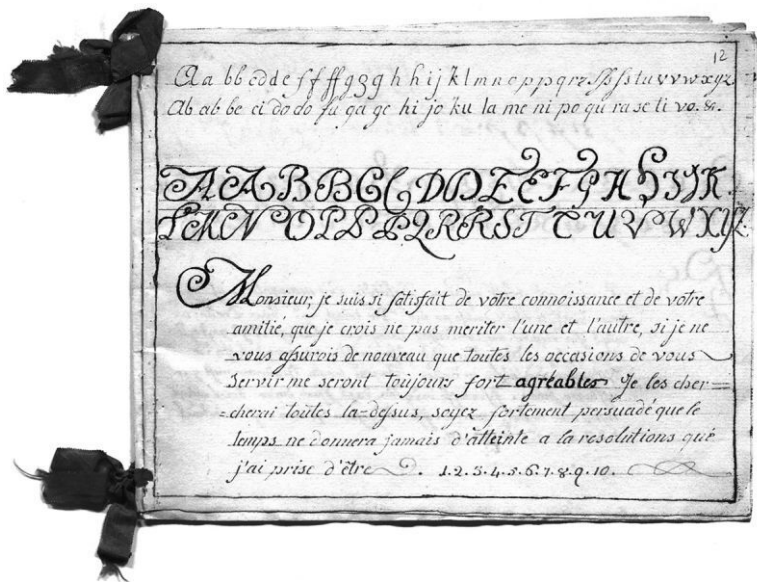 12
Aa bb cd de f f ff g g g h h i j k l m n o p p q r z s ss t u v v w x y z.
Ab ab be ci do do fu ga ge hi jo ku la me ni po qu ra se ti vo. &.
A A B B C C D D E E F G H H I J K.
L M N O P P P Q R R S T T U V W X Y Z.
Monsieur, je suis si satisfait de votre connoissance et de votre
amitié, que je crois ne pas meriter l'une et l'autre, si je ne
vous assurois de nouveau que toutes les occasions de vous
servir me seront toujours fort agréables Je les cher=
=cherai toutes la-dessus, soyez fortement persuadé que le
temps ne donnera jamais d'atteinte a la resolutions que
j'ai prise d'être. 1.2.3.4.5.6.7.8.9.10.